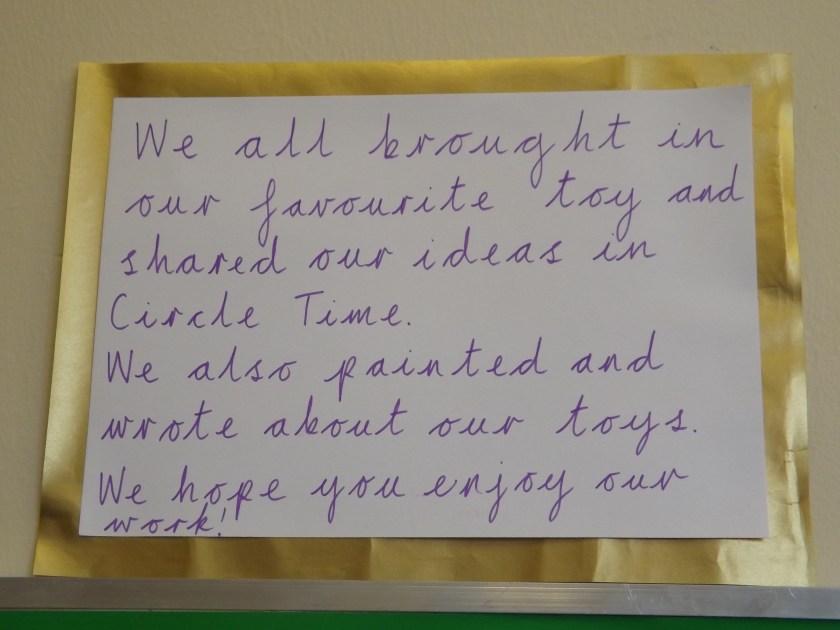 We all brought in
our favourite toy and
shared our ideas in
Circle Time.
We also painted and
wrote about our toys.
We hope you enjoy our
work!